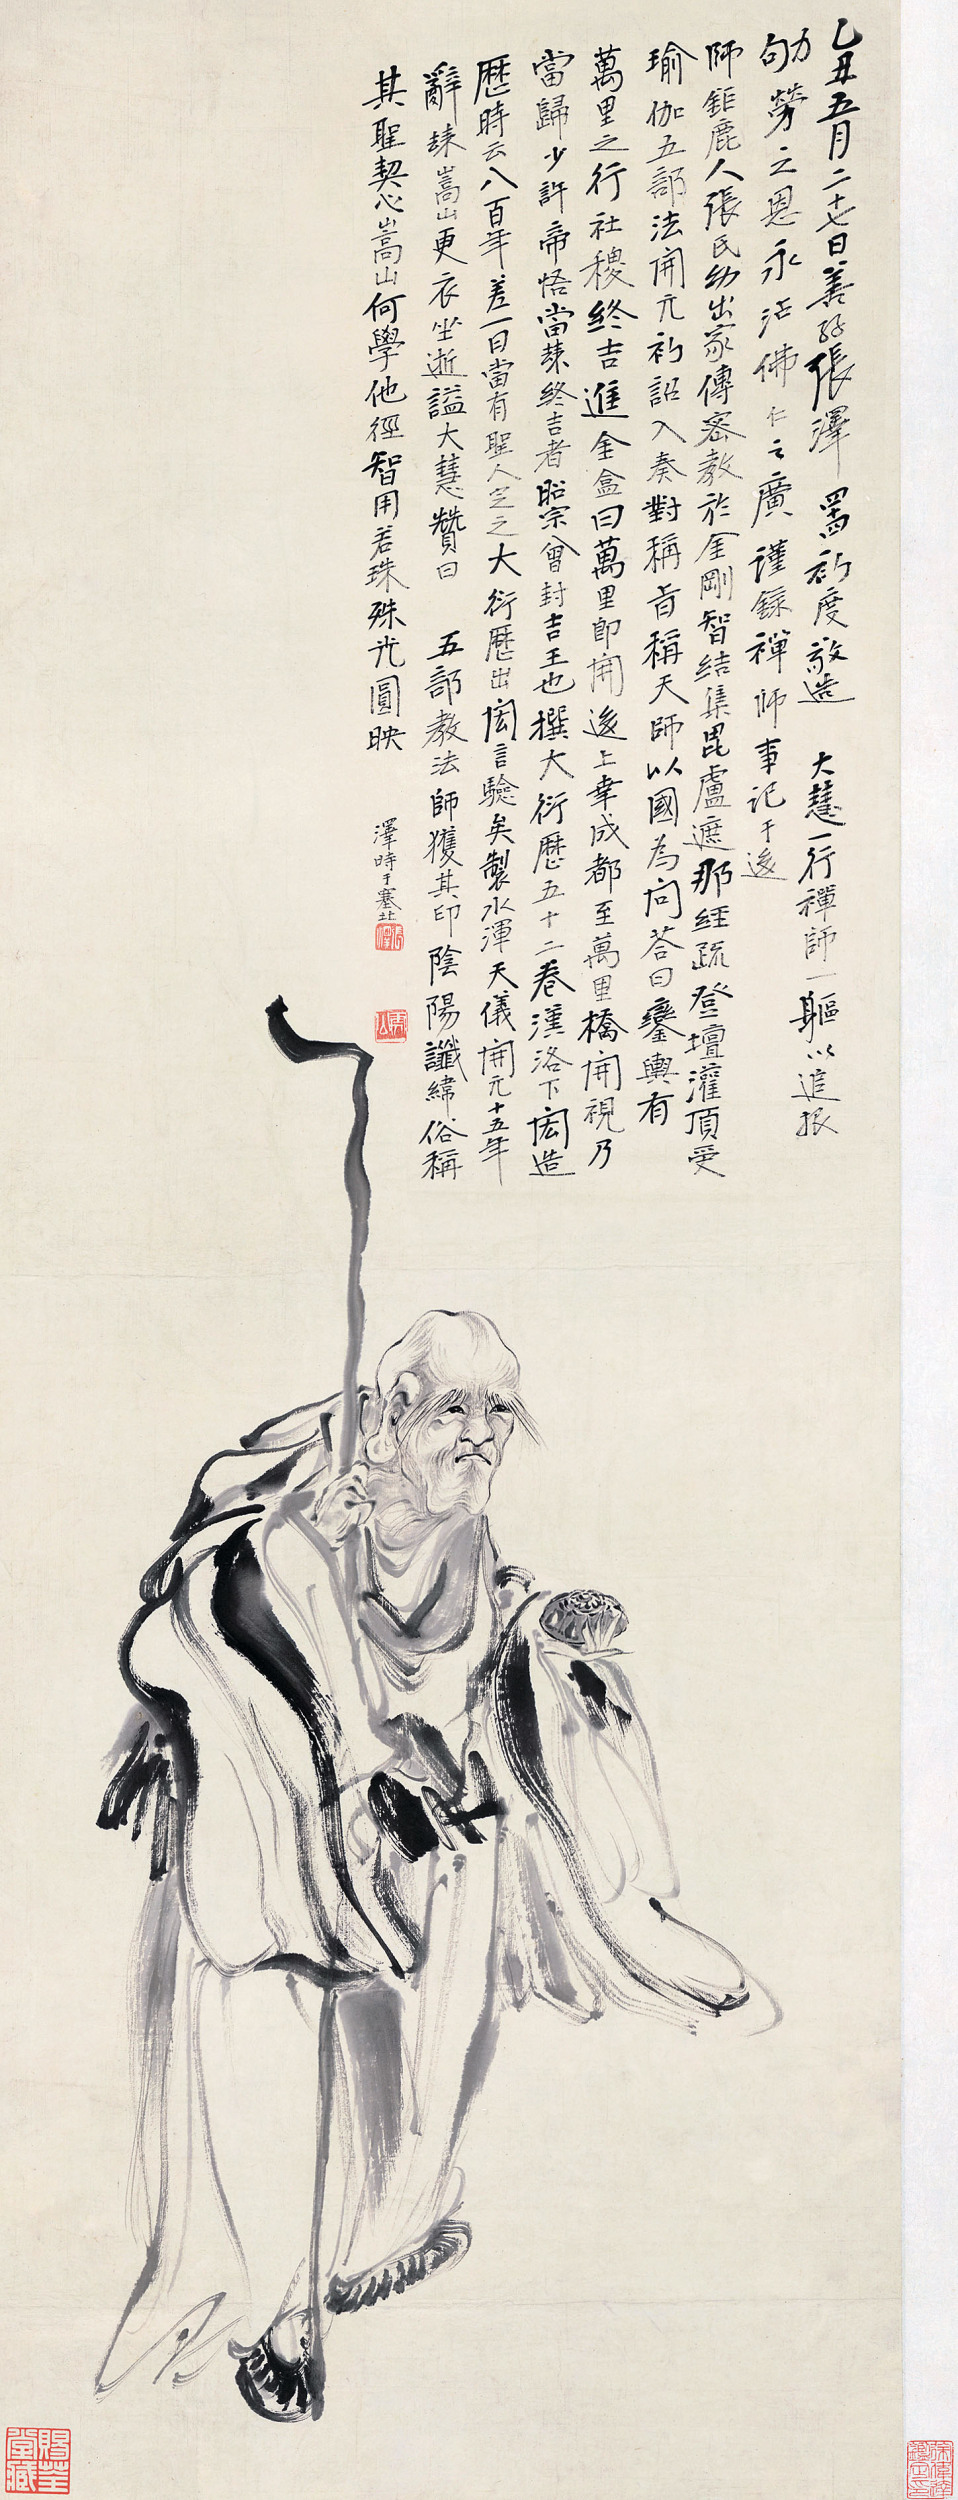 乙丑五月二十七日善孖張澤 四十四初度敬造 大慧一行禪師一軀以追报
劬勞之恩永沾佛仁之廣謹錄禪師事记于後
師鉅鹿人張氏幼出家傳密教於金剛智結集毘盧遮那經疏登壇灌頂受
瑜伽五部法開元初詔入奏對稱旨稱天師以國為问答曰鑾輿有
萬里之行社稷終吉進金盒曰萬里即開後上幸成都至萬里橋開視乃
當歸少許帝悟當歸終吉者昭宗曾封吉王也撰大衍歷五十二卷漢洛下宏造
歷時云八百年差一日當有聖人定之大衍歷出宏言驗矣製水渾天儀開元十五年
辭歸嵩山更衣坐逝謚大慧贊曰 五部教法師獲其印陰陽讖緯俗稱
其聖契心嵩山何學他徑智用若珠殊光圓映
澤時于塞北
張澤
賜荃堂藏
徐偉達鑑定印